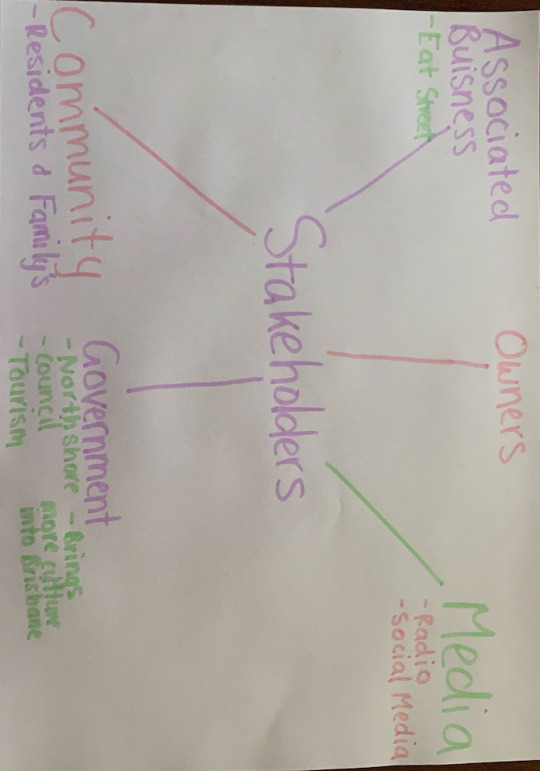 Associated
Buisness
-Eat Street
Owners
Media
-Radio
-Social Media
Stakeholders
Community
-Residents & Family's
Government
-Northshore
-Council
-Tourism
-Brings
more culture
into Brisbane